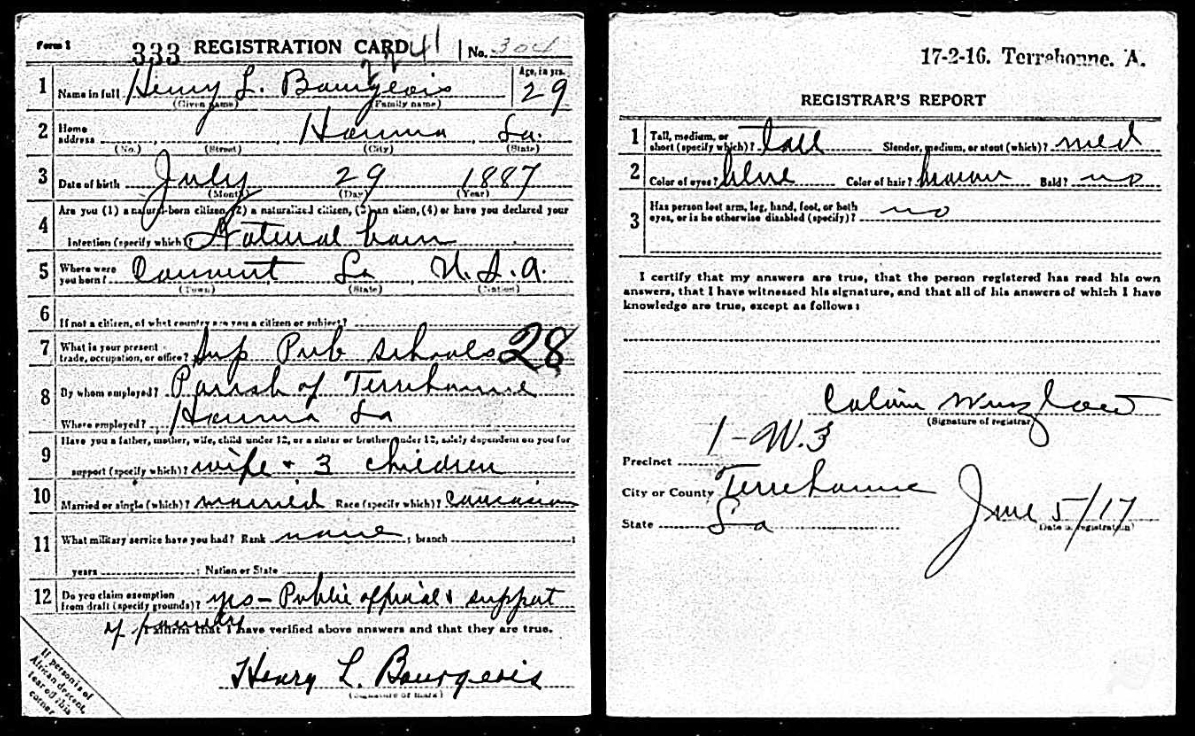 Form 1 333 REGISTRATION CARD 41 No. 304
1 Name in full Henry L. Bourgeois Age, in yrs. 29
(Given name) (Family name)
2 Home address Houma La.
(No.) (Street) (City) (State)
3 Date of birth July 29 1887
(Month) (Day) (Year)
4 Are you (1) a natural-born citizen, (2) a naturalized citizen, (3) an alien, (4) or have you declared your
intention (specify which)? Natural born
5 Where were you born? Convent La U.S.A.
(Town) (State) (Nation)
6 If not a citizen, of what country are you a citizen or subject?
7 What is your present trade, occupation, or office? Sup Pub Schools 28
8 By whom employed? Parish of Terrebonne
Where employed? Houma La
9 Have you a father, mother, wife, child under 12, or a sister or brother under 12, solely dependent on you for
support (specify which)? wife + 3 children
10 Married or single (which)? married Race (specify which)? Caucasian
11 What military service have you had? Rank none ; branch ;
years ; Nation or State
12 Do you claim exemption from draft (specify grounds)? yes - Public official & support
of family
I affirm that I have verified above answers and that they are true.
Henry L. Bourgeois
(Signature or mark)
If person is of
African descent,
tear off this
corner
17-2-16. Terrebonne. A.
REGISTRAR'S REPORT
1 Tall, medium, or short (specify which)? tall Slender, medium, or stout (which)? med
2 Color of eyes? blue Color of hair? brown Bald? no
3 Has person lost arm, leg, hand, foot, or both
eyes, or is he otherwise disabled (specify)? no
I certify that my answers are true, that the person registered has read his own
answers, that I have witnessed his signature, and that all of his answers of which I have
knowledge are true, except as follows:
Calvin Wurzlow
(Signature of registrar)
Precinct 1-W.3
City or County Terrebonne
State La June 5/17
(Date of registration)